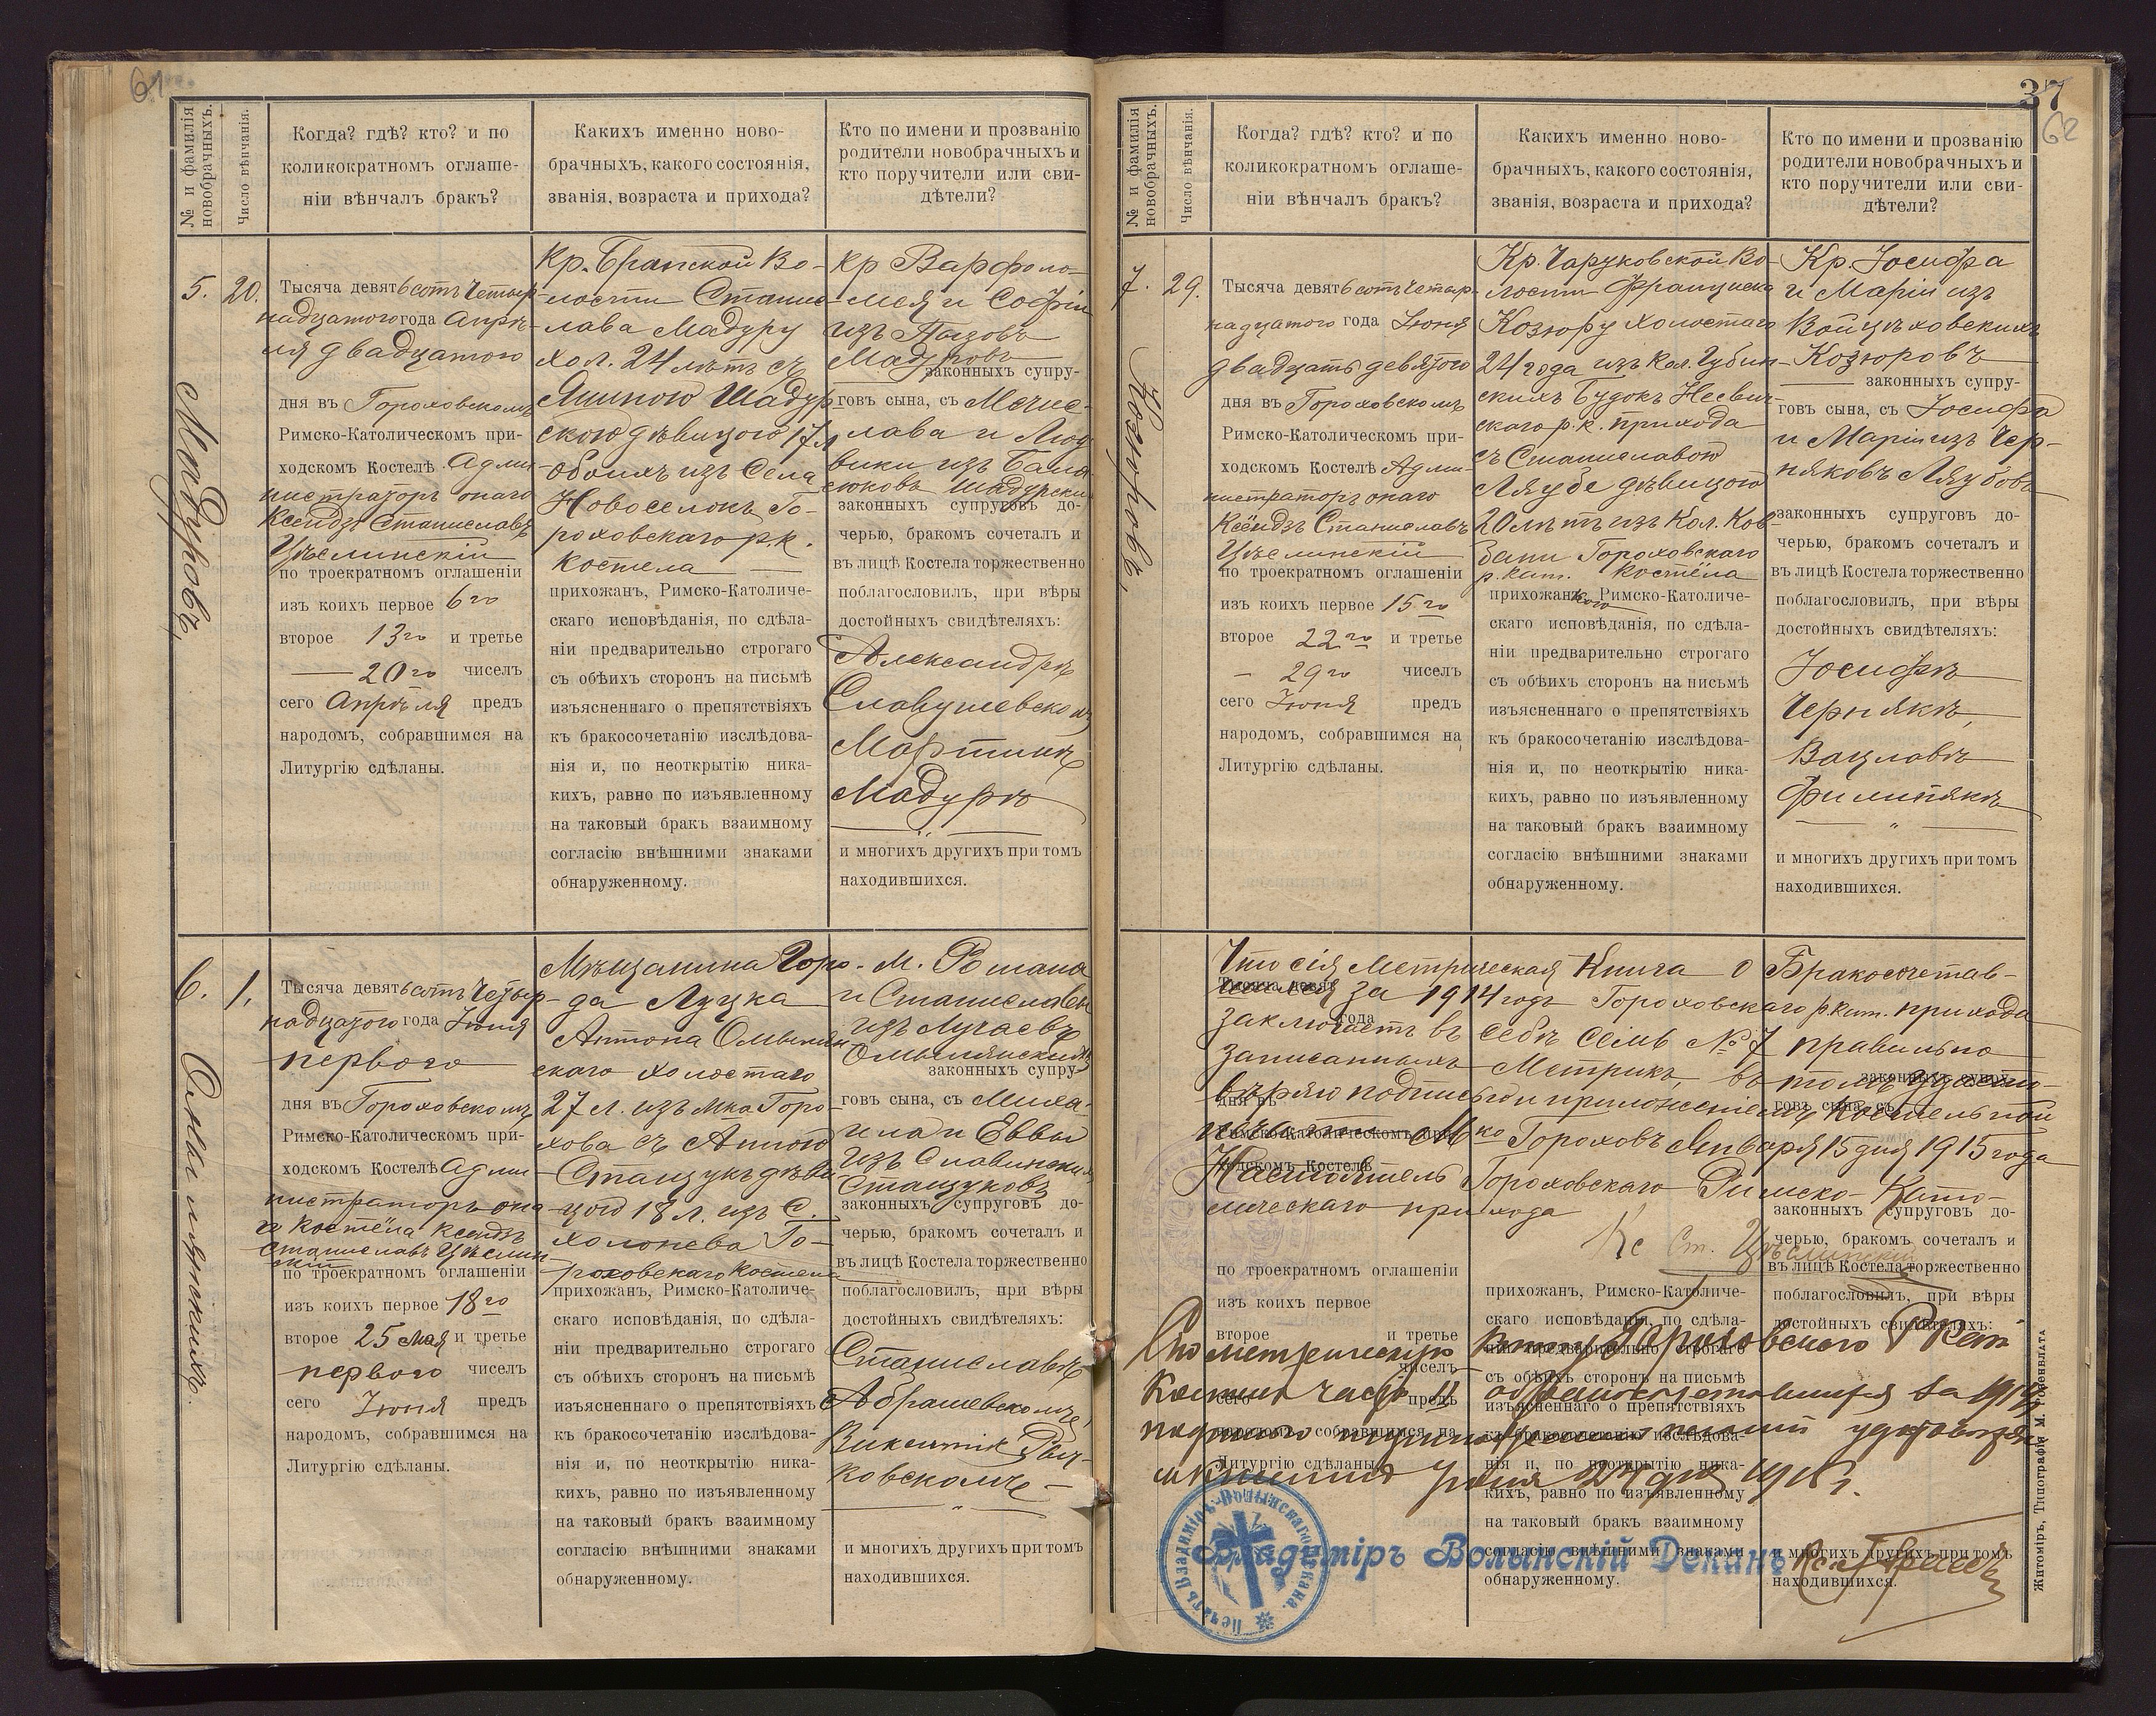 61
№ и фамилія новобрачныхъ.
Число вѣнчанія.
Когда? гдѣ? кто? и по
коликократномъ оглаше-
ніи вѣнчалъ бракъ?
Какихъ именно ново-
брачныхъ, какого состоянія,
званія, возраста и прихода?
Кто по имени и прозванію
родители новобрачныхъ и
кто поручители или сви-
дѣтели?
5.
Мадуровъ
20.
Тысяча девятьсотъ четыр-
надцатого года Апрѣ-
ля двадцатого
дня въ Гороховскомъ
Римско-Католическомъ при-
ходскомъ Костелѣ Адми-
нистраторъ онаго
Ксендзъ Станиславъ
Цѣслинскій
по троекратномъ оглашеніи
изъ коихъ первое 6го
второе 13го и третье
20го чиселъ
сего Апрѣля предъ
народомъ, собравшимся на
Литургію сдѣланы.
Кр. Бранской Во-
лости Станис-
лава Мадуру
хол. 24 лѣтъ съ
Яниною Шадур-
скою дѣвицою 17 л
обоихъ изъ Села
Новоселокъ Го-
роховскаго р.к.
костела
прихожанъ, Римско-Католиче-
скаго исповѣданія, по сдѣла-
ніи предварительно строгаго
съ обѣихъ сторонъ на письмѣ
изъясненнаго о препятствіяхъ
къ бракосочетанію изслѣдова-
нія и, по неоткрытію ника-
кихъ, равно по изъявленному
на таковый бракъ взаимному
согласію внѣшними знаками
обнаруженному.
кр Варфоло-
мея и Софіи
изъ
Мадуровъ
законныхъ супру-
говъ сына, съ Мечис-
лава и Люд
вики изъ
Шадурских
законныхъ супруговъ до-
черью, бракомъ сочеталъ и
въ лицѣ Костела торжественно
поблагословилъ, при вѣры
достойныхъ свидѣтеляхъ:
Александрѣ
Славушевскомъ
Мартинѣ
Мадурѣ
и многихъ другихъ при томъ
находившихся.
6.
Олькинянскихъ.
1.
Тысяча девятьсотъ четыр-
надцатого года Іюня
первого
дня въ Гороховскомъ
Римско-Католическомъ при-
ходскомъ Костелѣ Адми-
нистраторъ она-
г костёла Ксендзъ
Станиславъ Цѣслин
скій
по троекратномъ оглашеніи
изъ коихъ первое 18го
второе 25 мая и третье
первого чиселъ
сего Іюня предъ
народомъ, собравшимся на
Литургію сдѣланы.
Мѣщанина Горо-
да Луцка
Антона
скаго холостаго
27 л. изъ мка Горо-
хова съ Анною
Стащукъ дѣви-
цою 18 л. изъ С.
Холонева Го-
роховскаго костела
прихожанъ, Римско-Католиче-
скаго исповѣданія, по сдѣла-
ніи предварительно строгаго
съ обѣихъ сторонъ на письмѣ
изъясненнаго о препятствіяхъ
къ бракосочетанію изслѣдова-
нія и, по неоткрытію ника-
кихъ, равно по изъявленному
на таковый бракъ взаимному
согласію внѣшними знаками
обнаруженному.
М. Романа
и Станиславы
изъ Лугаевъ
законныхъ супру-
говъ сына, съ Миха-
ила и Еввы
изъ Славинских
Стащуковъ
законныхъ супруговъ до-
черью, бракомъ сочеталъ и
въ лицѣ Костела торжественно
поблагословилъ, при вѣры
достойныхъ свидѣтеляхъ:
Станиславѣ
Абрашевскомъ,
Викентіи
ковскомъ
и многихъ другихъ при томъ
находившихся.
37
62
№ и фамилія новобрачныхъ.
Число вѣнчанія.
Когда? гдѣ? кто? и по
коликократномъ оглаше-
ніи вѣнчалъ бракъ?
Какихъ именно ново-
брачныхъ, какого состоянія,
званія, возраста и прихода?
Кто по имени и прозванію
родители новобрачныхъ и
кто поручители или сви-
дѣтели?
7.
Козюровъ
29.
Тысяча девятьсотъ четыр-
надцатого года Іюня
двадцать девятого
дня въ Гороховскомъ
Римско-Католическомъ при-
ходскомъ Костелѣ Адми-
нистраторъ онаго
Ксёндзъ Станиславъ
Цѣслинскій
по троекратномъ оглашеніи
изъ коихъ первое 15го
второе 22го и третье
29го чиселъ
сего Іюня предъ
народомъ, собравшимся на
Литургію сдѣланы.
Кр. Чаруковской Во-
лости Франциска
Козюру холостаго
24 года изъ кол. Губин-
скихъ Будокъ Несвич-
скаго р. к. прихода
съ Станиславою
Ляубе дѣвицою
20 лѣтъ изъ Кол. Ков-
бани Гороховскаго
р. кат. костёла
прихожанкою Римско-Католиче-
скаго исповѣданія, по сдѣла-
ніи предварительно строгаго
съ обѣихъ сторонъ на письмѣ
изъясненнаго о препятствіяхъ
къ бракосочетанію изслѣдова-
нія и, по неоткрытію ника-
кихъ, равно по изъявленному
на таковый бракъ взаимному
согласію внѣшними знаками
обнаруженному.
Кр. Іосифа
и Маріи изъ
Войцѣховскихъ
Козюровъ
законныхъ супру-
говъ сына, съ Іосифа
и Маріи изъ Чер-
няковъ Ляубовъ
законныхъ супруговъ до-
черью, бракомъ сочеталъ и
въ лицѣ Костела торжественно
поблагословилъ, при вѣры
достойныхъ свидѣтеляхъ:
Іосифѣ
Чернякѣ,
Вацлавѣ
Филипякѣ
и многихъ другихъ при томъ
находившихся.
Что сія Метрическая Книга о Бракосочетав-
шихся за 1914 годъ Гороховскаго р. кат. прихода
заключаетъ въ себѣ семь № 7 правильно
записанныхъ Метрикъ, въ томъ удосто-
вѣряю подписью и приложеніемъ костельной
печати. Мко Гороховъ Января 15 дня 1915 года
Настоятель Гороховскаго Римско-Като-
лическаго прихода
Кс Ст. Цѣслинскій
по троекратномъ оглашеніи
изъ коихъ первое
второе и третье
чиселъ
сего предъ
народомъ, собравшимся на
Литургію сдѣланы.
прихожанъ, Римско-Католиче-
скаго исповѣданія, по сдѣла-
ніи предварительно строгаго
съ обѣихъ сторонъ на письмѣ
изъясненнаго о препятствіяхъ
къ бракосочетанію изслѣдова-
нія и, по неоткрытію ника-
кихъ, равно по изъявленному
на таковый бракъ взаимному
согласію внѣшними знаками
обнаруженному.
законныхъ супруговъ до-
черью, бракомъ сочеталъ и
въ лицѣ Костела торжественно
поблагословилъ, при вѣры
достойныхъ свидѣтеляхъ:
и многихъ другихъ при томъ
находившихся.
метрическую книгу Гороховского Р Кат
часть II о бракосочетавшихся за 1914
Владиміръ Волынскій Деканъ
Печать Владиміръ-Волынскаго Декана.
Житоміръ, Типографія М. Розенблата